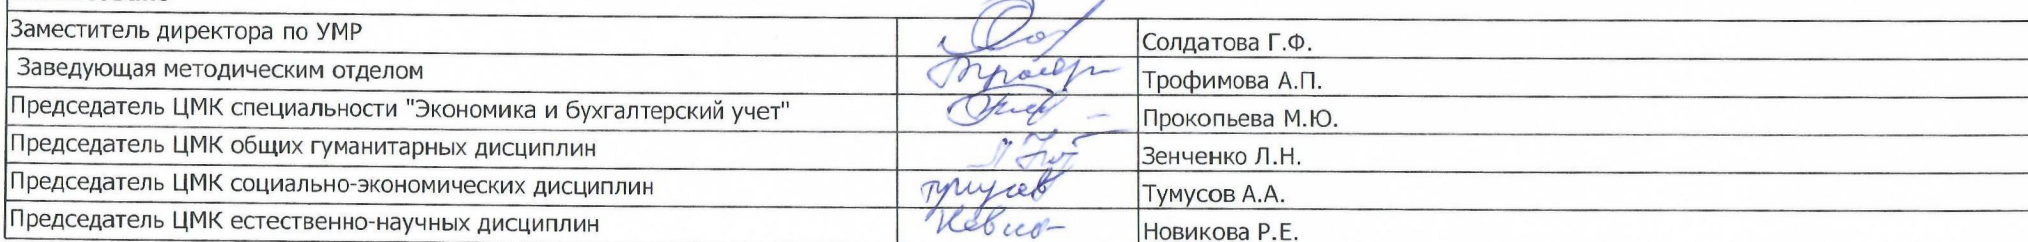 Заместитель директора по УМР Солдатова Г.Ф.
Заведующая методическим отделом Трофимова А.П.
Председатель ЦМК специальности "Экономика и бухгалтерский учет" Прокопьева М.Ю.
Председатель ЦМК общих гуманитарных дисциплин Зенченко Л.Н.
Председатель ЦМК социально-экономических дисциплин Тумусов А.А.
Председатель ЦМК естественно-научных дисциплин Новикова Р.Е.